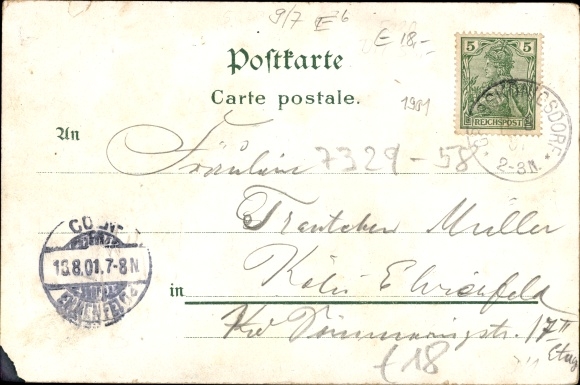 9/7 E 6
E 18,-
Postkarte
Carte postale.
1901
5 5
REICHSPOST
2-3N.
An
Fräulein
7329-58
Trautchen Müller
COELN-
13.8.01.7-8N
EHRENFELD
Köln Ehrenfeld
in
II
Etag
£18